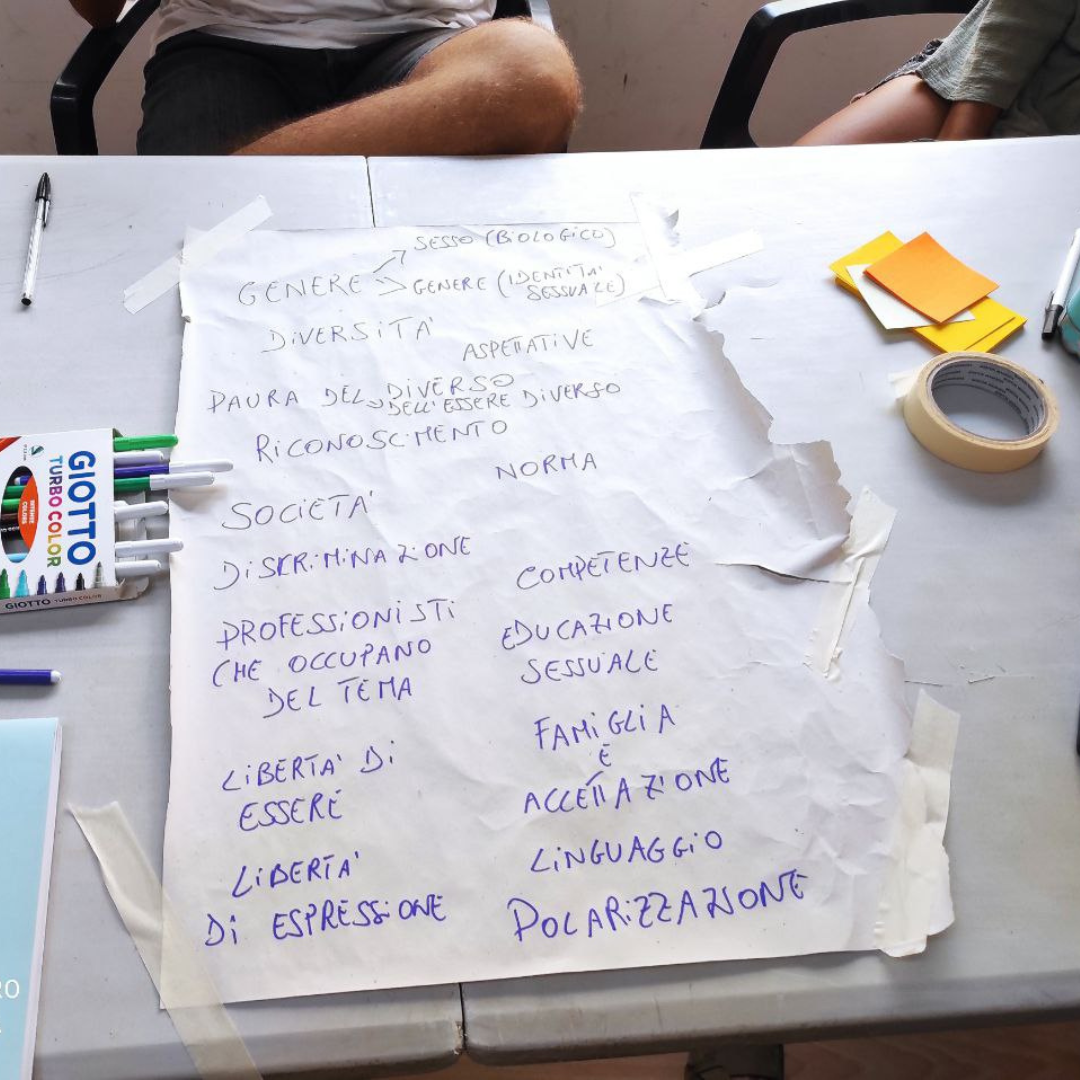 SESSO (BIOLOGICO)
GENERE
GENERE (IDENTITA'
SESSUALE)
DIVERSITA'
ASPETTATIVE
PAURA DEL DIVERSO
DELL'ESSERE DIVERSO
RICONOSCIMENTO
NORMA
SOCIETA'
DISCRIMINAZIONE
COMPETENZE
PROFESSIONISTI
CHE OCCUPANO
DEL TEMA
EDUCAZIONE
SESSUALE
FAMIGLIA
E
ACCETTAZIONE
LIBERTA' DI
ESSERE
LINGUAGGIO
LIBERTA'
DI ESPRESSIONE
POLARIZZAZIONE
GIOTTO
TURBO COLOR
INTENSE
COLORS
GIOTTO TURBO COLOR
RO